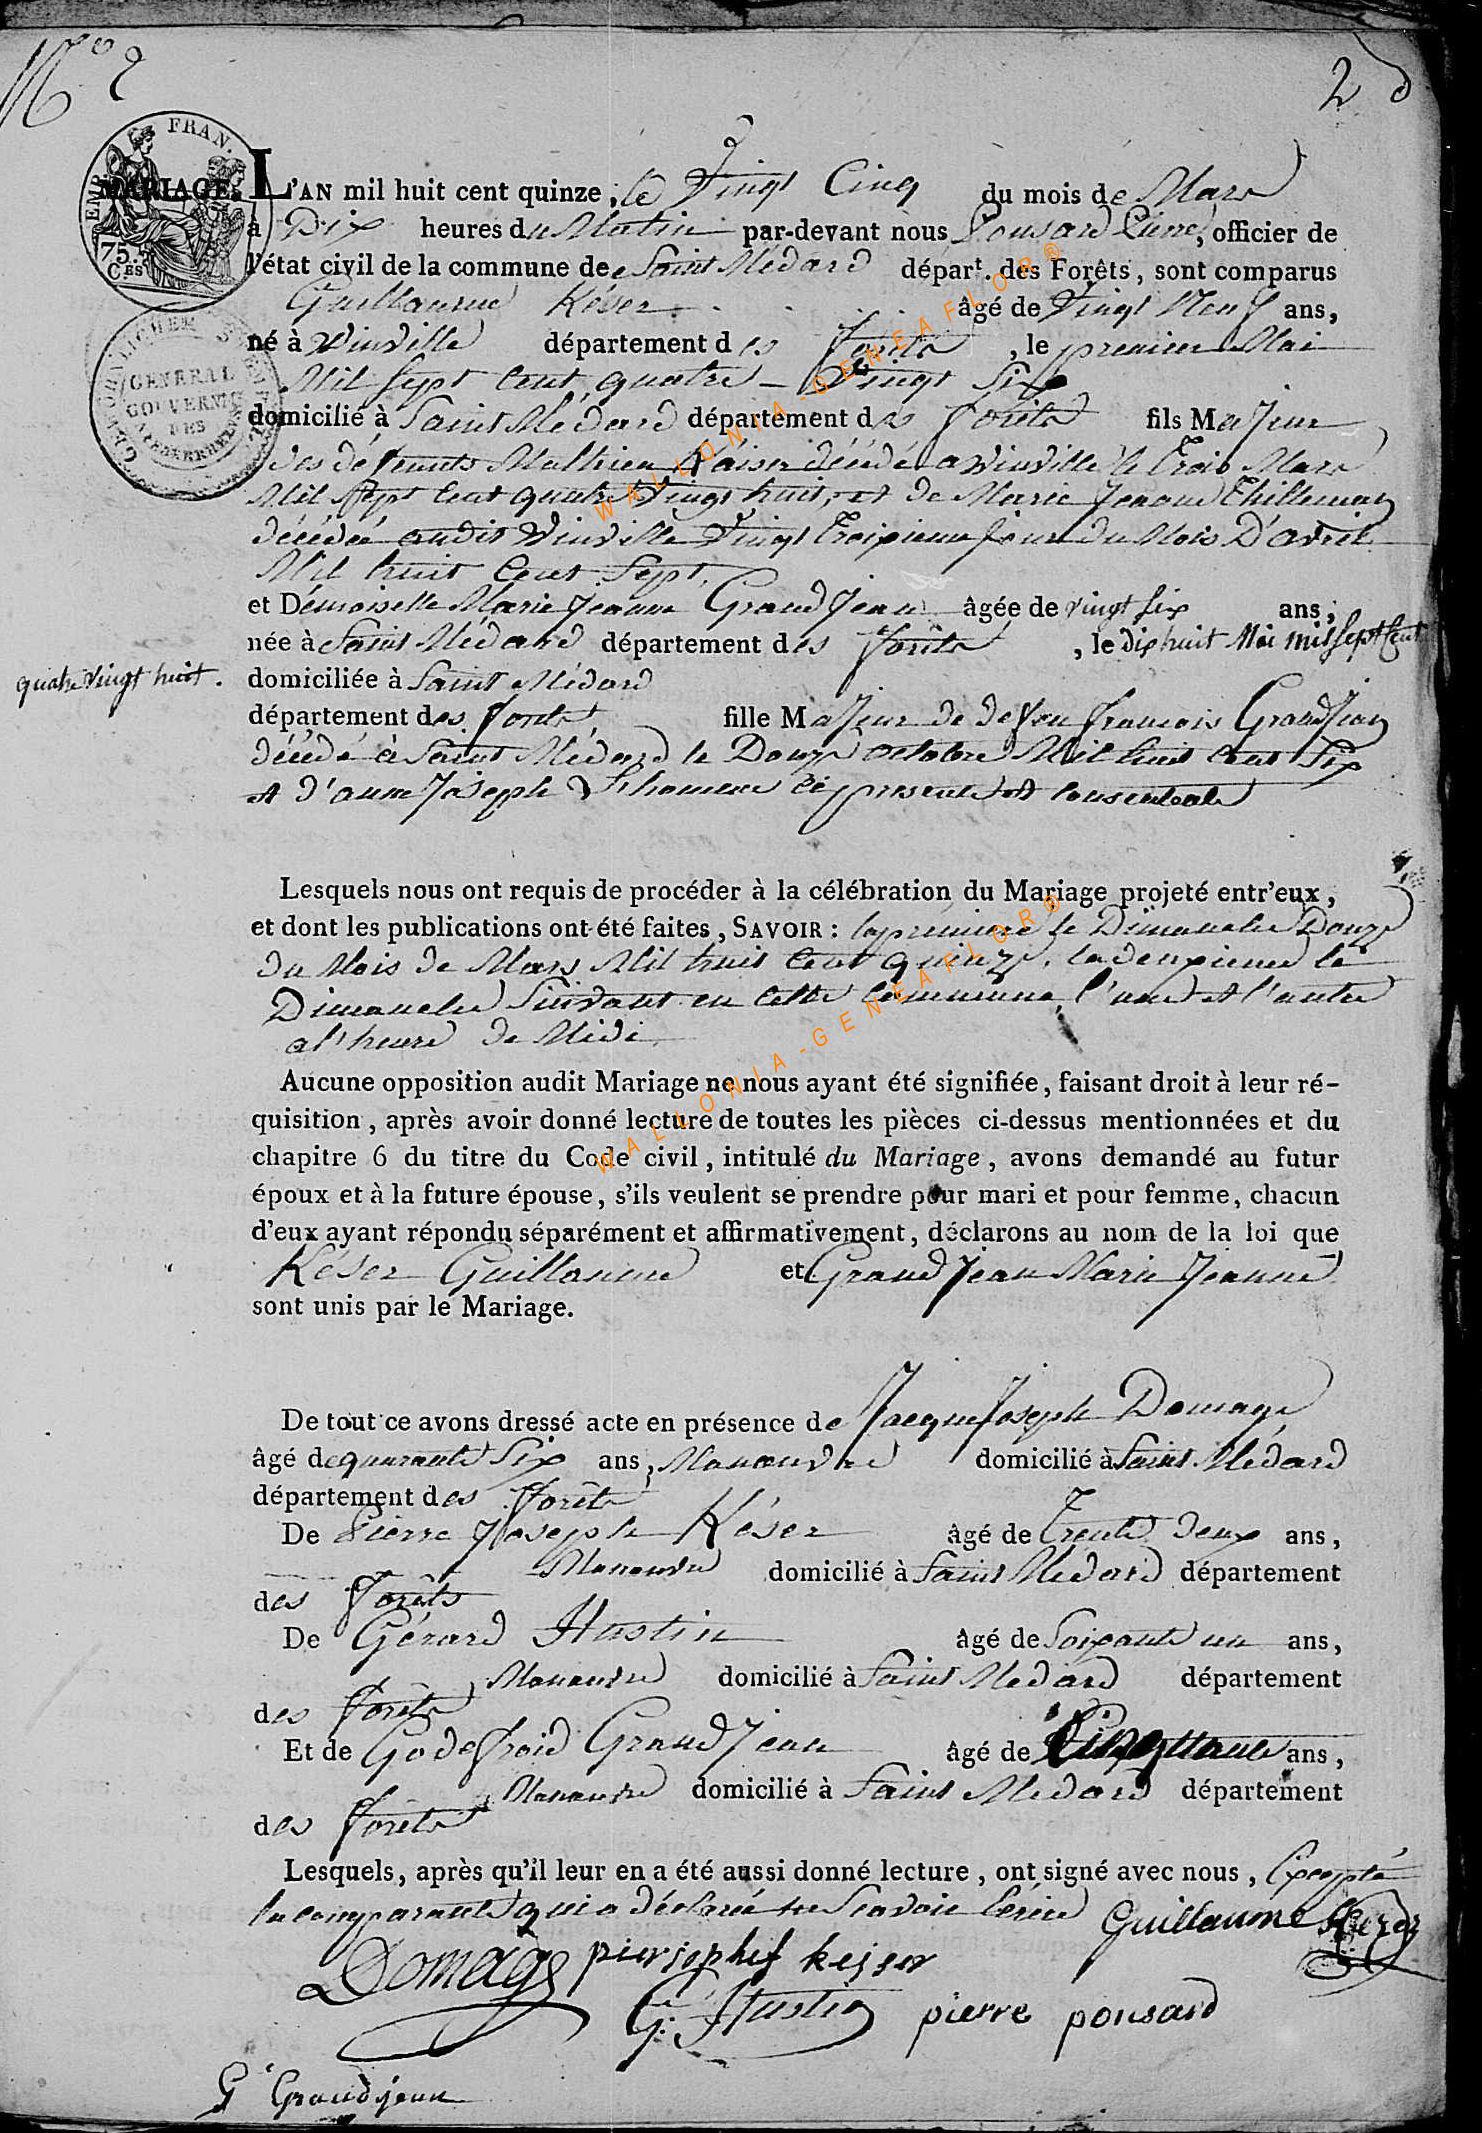 N° 2
2 d
FRAN.
EMP.
75
CES
MARIAGE. L'AN mil huit cent quinze, le Vingt Cinq du mois de Mars
à Dix heures du Matin par-devant nous Pousard Pierre, officier de
l'état civil de la commune de Saint Médard départ. des Forêts, sont comparus
Guillaume Késer âgé de Vingt Neuf ans,
né à Winville département des forêts, le premier Mai
Mil sept Cent quatre Vingt Six
GENERAL
GOUVERNEM
DES
domicilié à Saint Médard département des forêts fils Majeur
des défunts Mathieu Kaiser décédé a Winville le Trois Mars
Mil sept Cent quatre Vingt huit, et de Marie Jeanne Thilleman
décédée audit Winville Vingt Troixieme jour du Mois D'avril
Mil huit Cent Sept.
et Démoiselle Marie Jeanne GrandJean âgée de vingt six ans,
née à Saint Médard département des forêts, le dix huit Mai mil Sept Cent
quatre vingt huit.
domiciliée à Saint Médard
département des forêts fille Majeur de defeu francois GrandJean
décédé à Saint Médard le Douze octobre Mil huit Cent Six
et d'anne Joseph cé presente et consentante
Lesquels nous ont requis de procéder à la célébration du Mariage projeté entr'eux,
et dont les publications ont été faites, SAVOIR : la premiere le Dimanche Douze
du Mois de Mars Mil huit Cent quinze, la deuxieme le
Dimanche Suivant en cette commune, l'une et l'autre
a l'heure de Midi
Aucune opposition audit Mariage ne nous ayant été signifiée, faisant droit à leur ré-
quisition, après avoir donné lecture de toutes les pièces ci-dessus mentionnées et du
chapitre 6 du titre du Code civil, intitulé du Mariage, avons demandé au futur
époux et à la future épouse, s'ils veulent se prendre pour mari et pour femme, chacun
d'eux ayant répondu séparément et affirmativement, déclarons au nom de la loi que
Késer Guillaume et GrandJean Marie Jeanne
sont unis par le Mariage.
De tout ce avons dressé acte en présence de Jacque Joseph Domage
âgé de quarante Six ans, Manœuvre domicilié à Saint Médard
département des forêts
De Pierre Joseph Késer âgé de Trente deux ans,
Manœuvre domicilié à Saint Médard département
des forêts
De Gérard Hustin âgé de Soixante un ans,
Manœuvre domicilié à Saint Médard département
des forêts
Et de Godefroid GrandJean âgé de Cinquante ans,
Manœuvre domicilié à Saint Médard département
des forêts
Lesquels, après qu'il leur en a été aussi donné lecture, ont signé avec nous, Excepté
la comparante qui a déclarée ne Scavoir Ecrire Guillaume Keser
Domage pierjosphef keiser
G: Hustin pierre pousard
G Grandjean
WALLONIA-GENEAFLOR®
WALLONIA-GENEAFLOR®